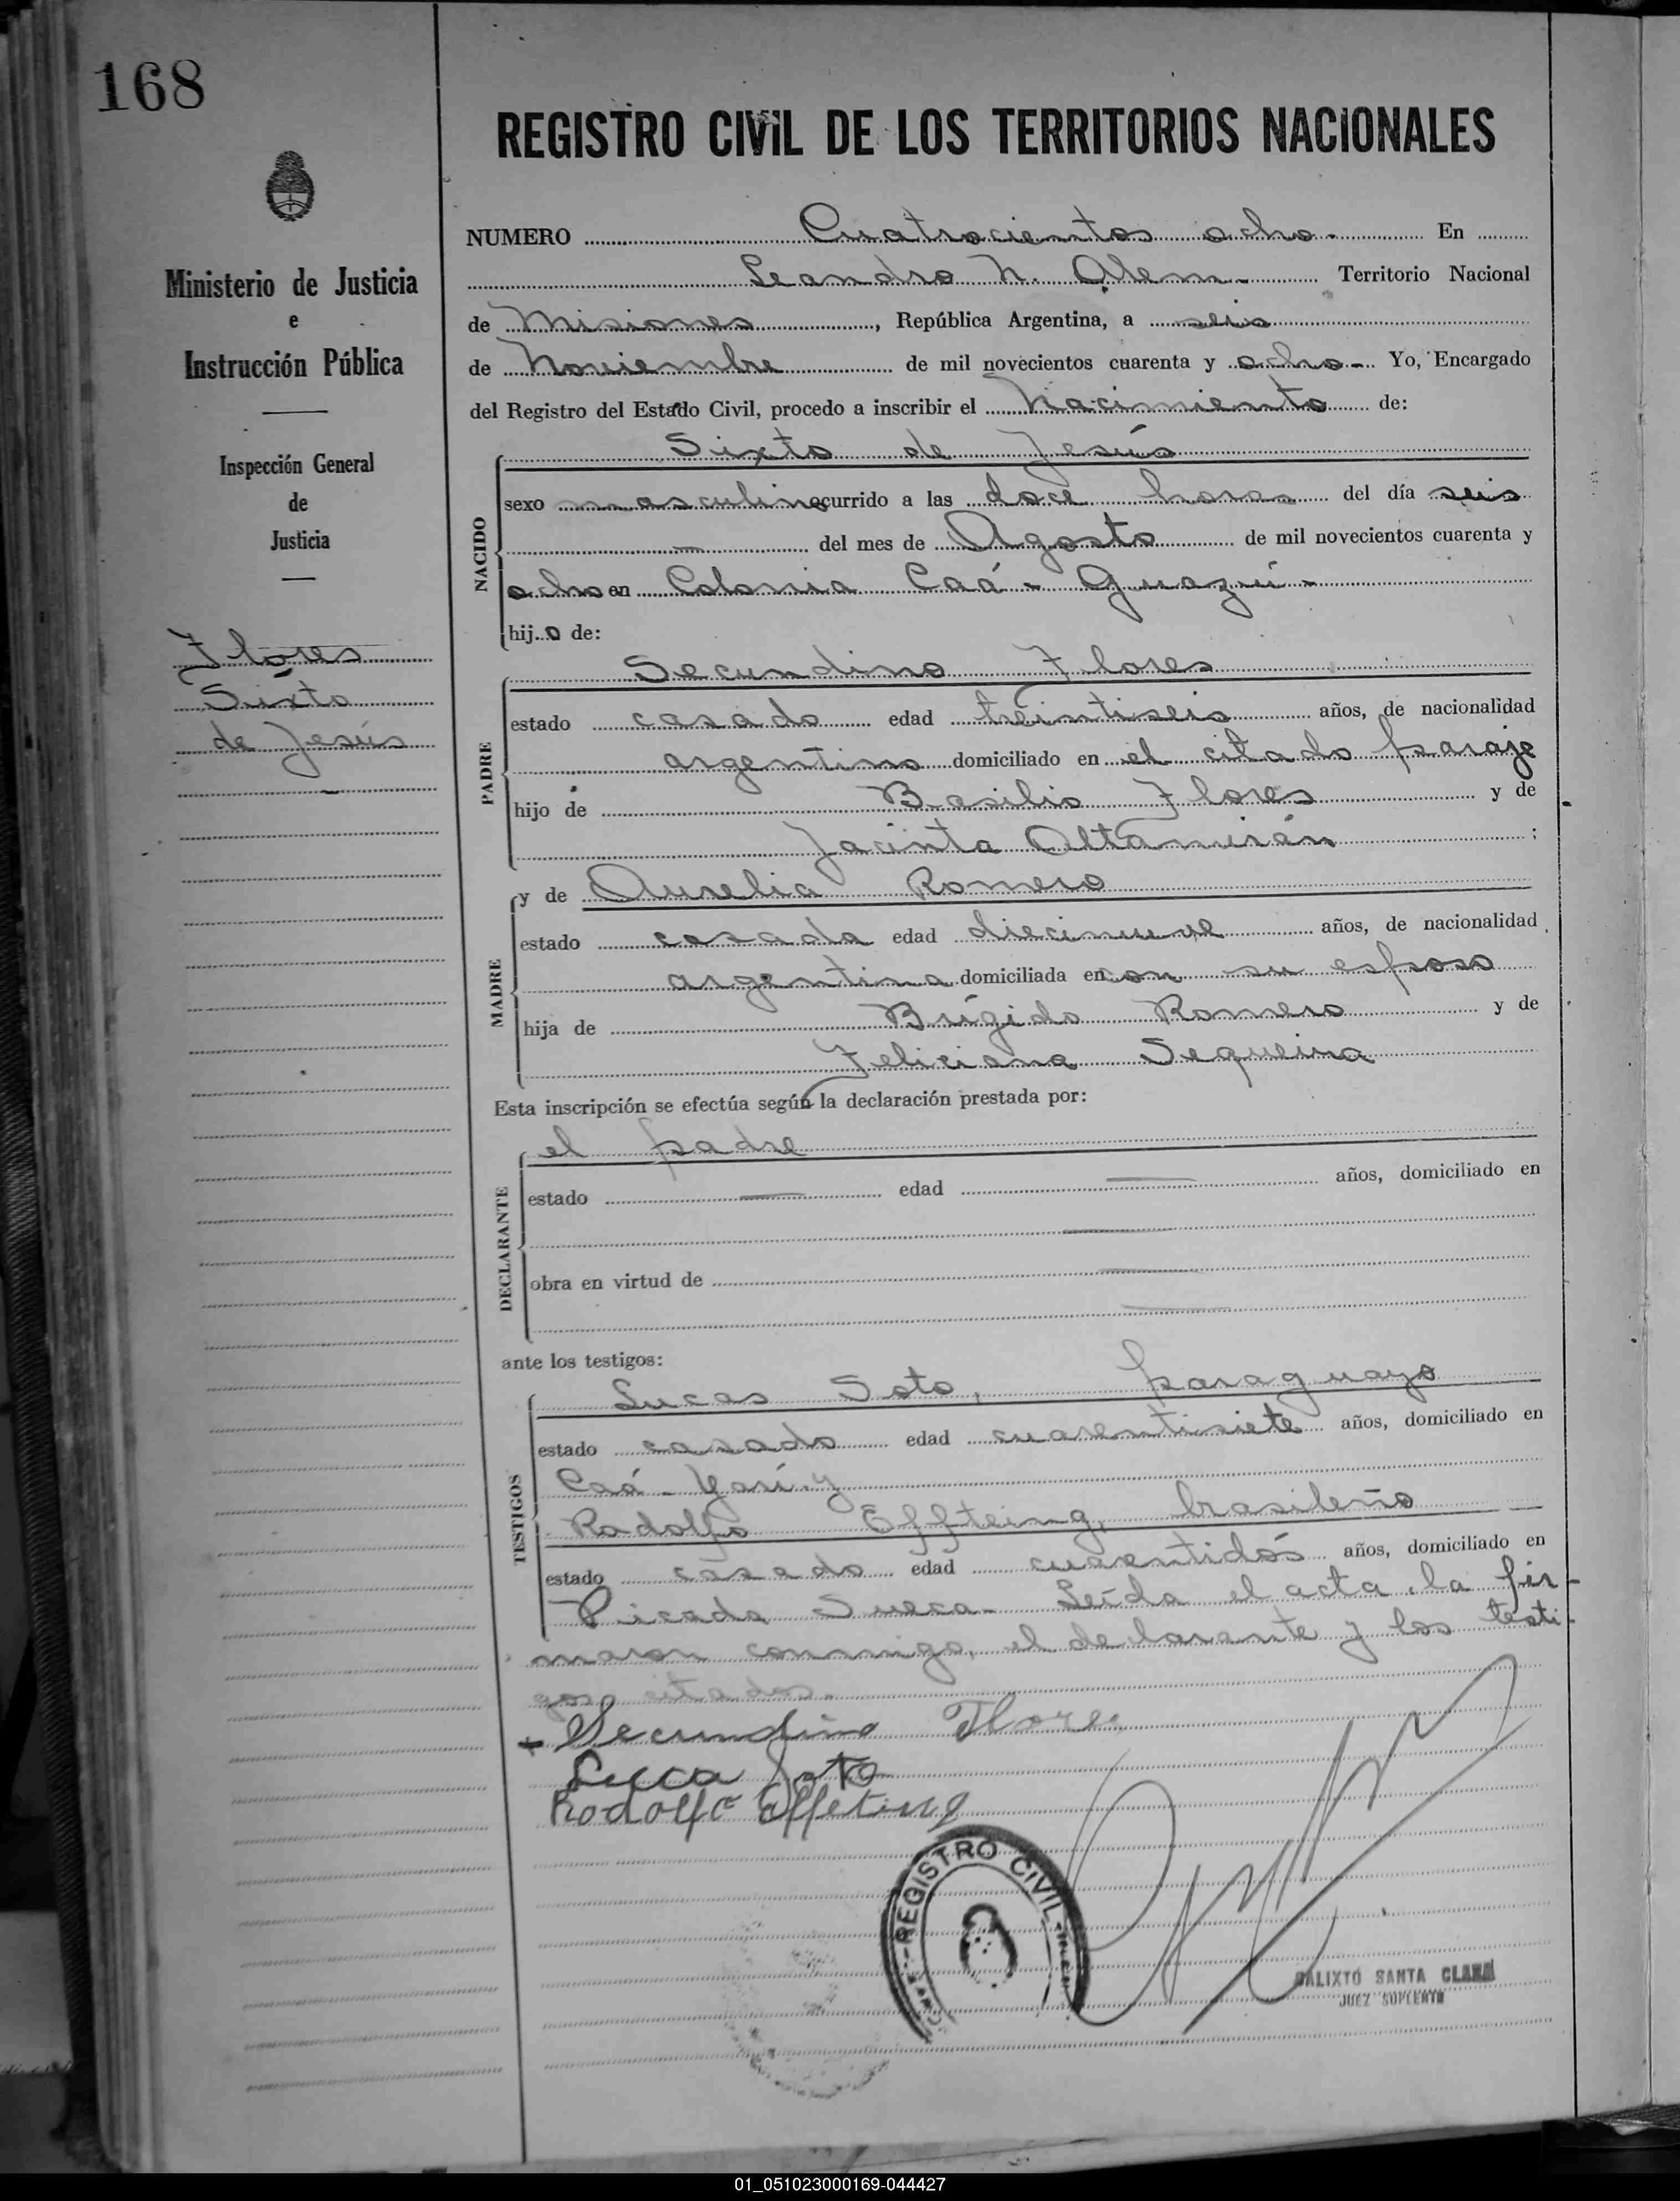 168
REGISTRO CIVIL DE LOS TERRITORIOS NACIONALES
Ministerio de Justicia
e
Instrucción Pública
Inspección General
de
Justicia
Flores
Sixto
de Jesús
NUMERO Cuatrocientos ocho. En
Leandro N. Alem Territorio Nacional
de Misiones, República Argentina, a seis
de Noviembre de mil novecientos cuarenta y ocho Yo, Encargado
del Registro del Estado Civil, procedo a inscribir el Nacimiento de:
Sixto de Jesús
NACIDO
sexo masculino ocurrido a las doce horas del día seis
— del mes de Agosto de mil novecientos cuarenta y
ocho en Colonia Caá-Guazú-
hijo de:
Secundino Flores
PADRE
estado casado edad treintiseis años, de nacionalidad
argentino domiciliado en el citado paraje
hijo de Basilio Flores y de
Jacinta Altamirán ;
MADRE
y de Aurelia Romero
estado casada edad diecinueve años, de nacionalidad
argentina domiciliada en con su esposo
hija de Brígido Romero y de
Feliciana Sequeira
Esta inscripción se efectúa según la declaración prestada por:
el padre
DECLARANTE
estado — edad — años, domiciliado en
—
obra en virtud de —
—
ante los testigos:
Lucas Soto, paraguayo
TESTIGOS
estado casado edad cuarentisiete años, domiciliado en
Caá-Yarí-y
Rodolfo Effteing, brasileño —
estado casado edad cuarentidós años, domiciliado en
Picada Sueca- Leída el acta la fir-
maron conmigo, el declarante y los testi-
gos citados.
Secundino Flores
Luca Soto
Rodolfo Effeting
REGISTRO CIVIL
CALIXTO SANTA CLARA
JUEZ SUPLENTE
01_051023000169-044427